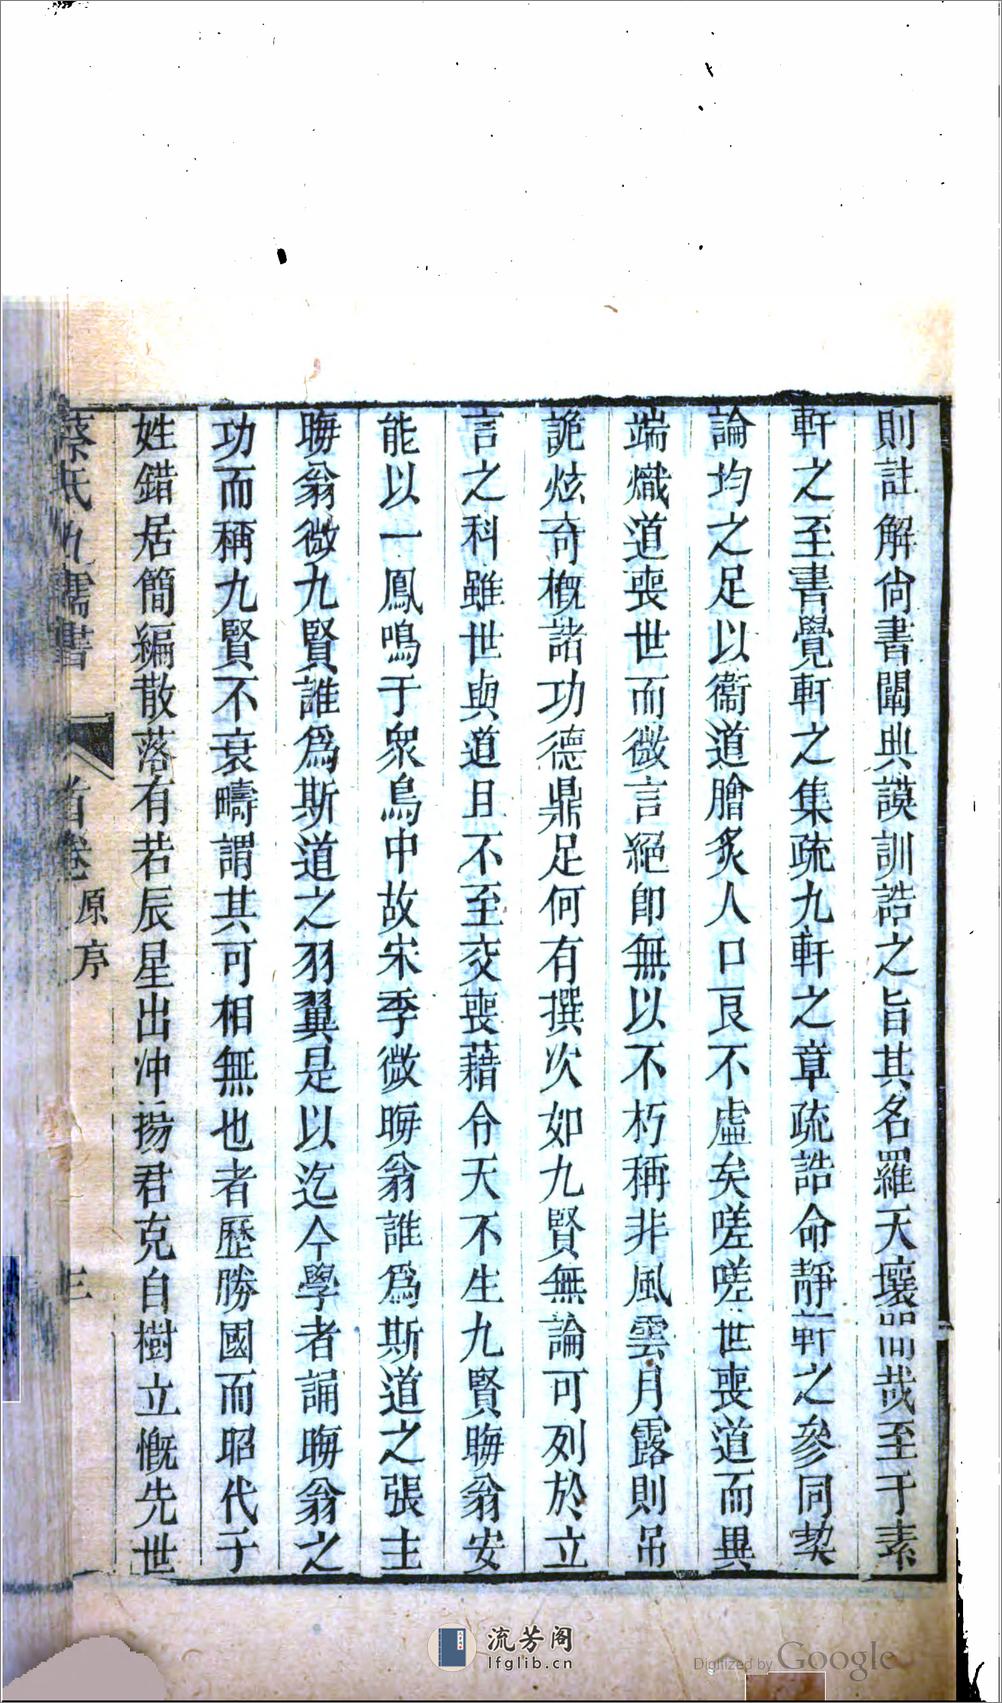 則註解尙書闡典謨訓誥之旨其名羅天壤間哉至于素
軒之至書覺軒之集疏九軒之章疏誥命靜軒之參同契
論均之足以衞道膾炙人口良不虛矣嗟嗟世喪道而異
端熾道喪世而微言絕卽無以不朽稱非風雲月露則吊
詭炫奇槪諸功德鼎足何有撰次如九賢無論可列於立
言之科雖世與道且不至交喪藉令天不生九賢晦翁安
能以一鳳鳴于衆鳥中故宋季微晦翁誰爲斯道之張主
晦翁微九賢誰爲斯道之羽翼是以迄今學者誦晦翁之
功而稱九賢不衰疇謂其可相無也者歷勝國而昭代于
姓錯居簡編散落有若辰星出冲揚君克自樹立慨先世
蔡氏九儒書 首卷 原序 三
流芳阁
lfglib.cn
Digitized by Google